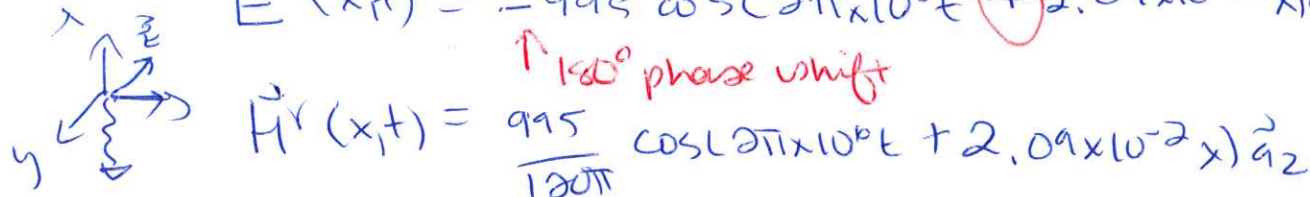 E (x,t) = -995 cos(2π×10⁶t + 2.09×10
↑ 180° phase shift
x z y
H⃗ʳ (x,t) = 995/120π cos(2π×10⁶t + 2.09×10⁻² x) a⃗z